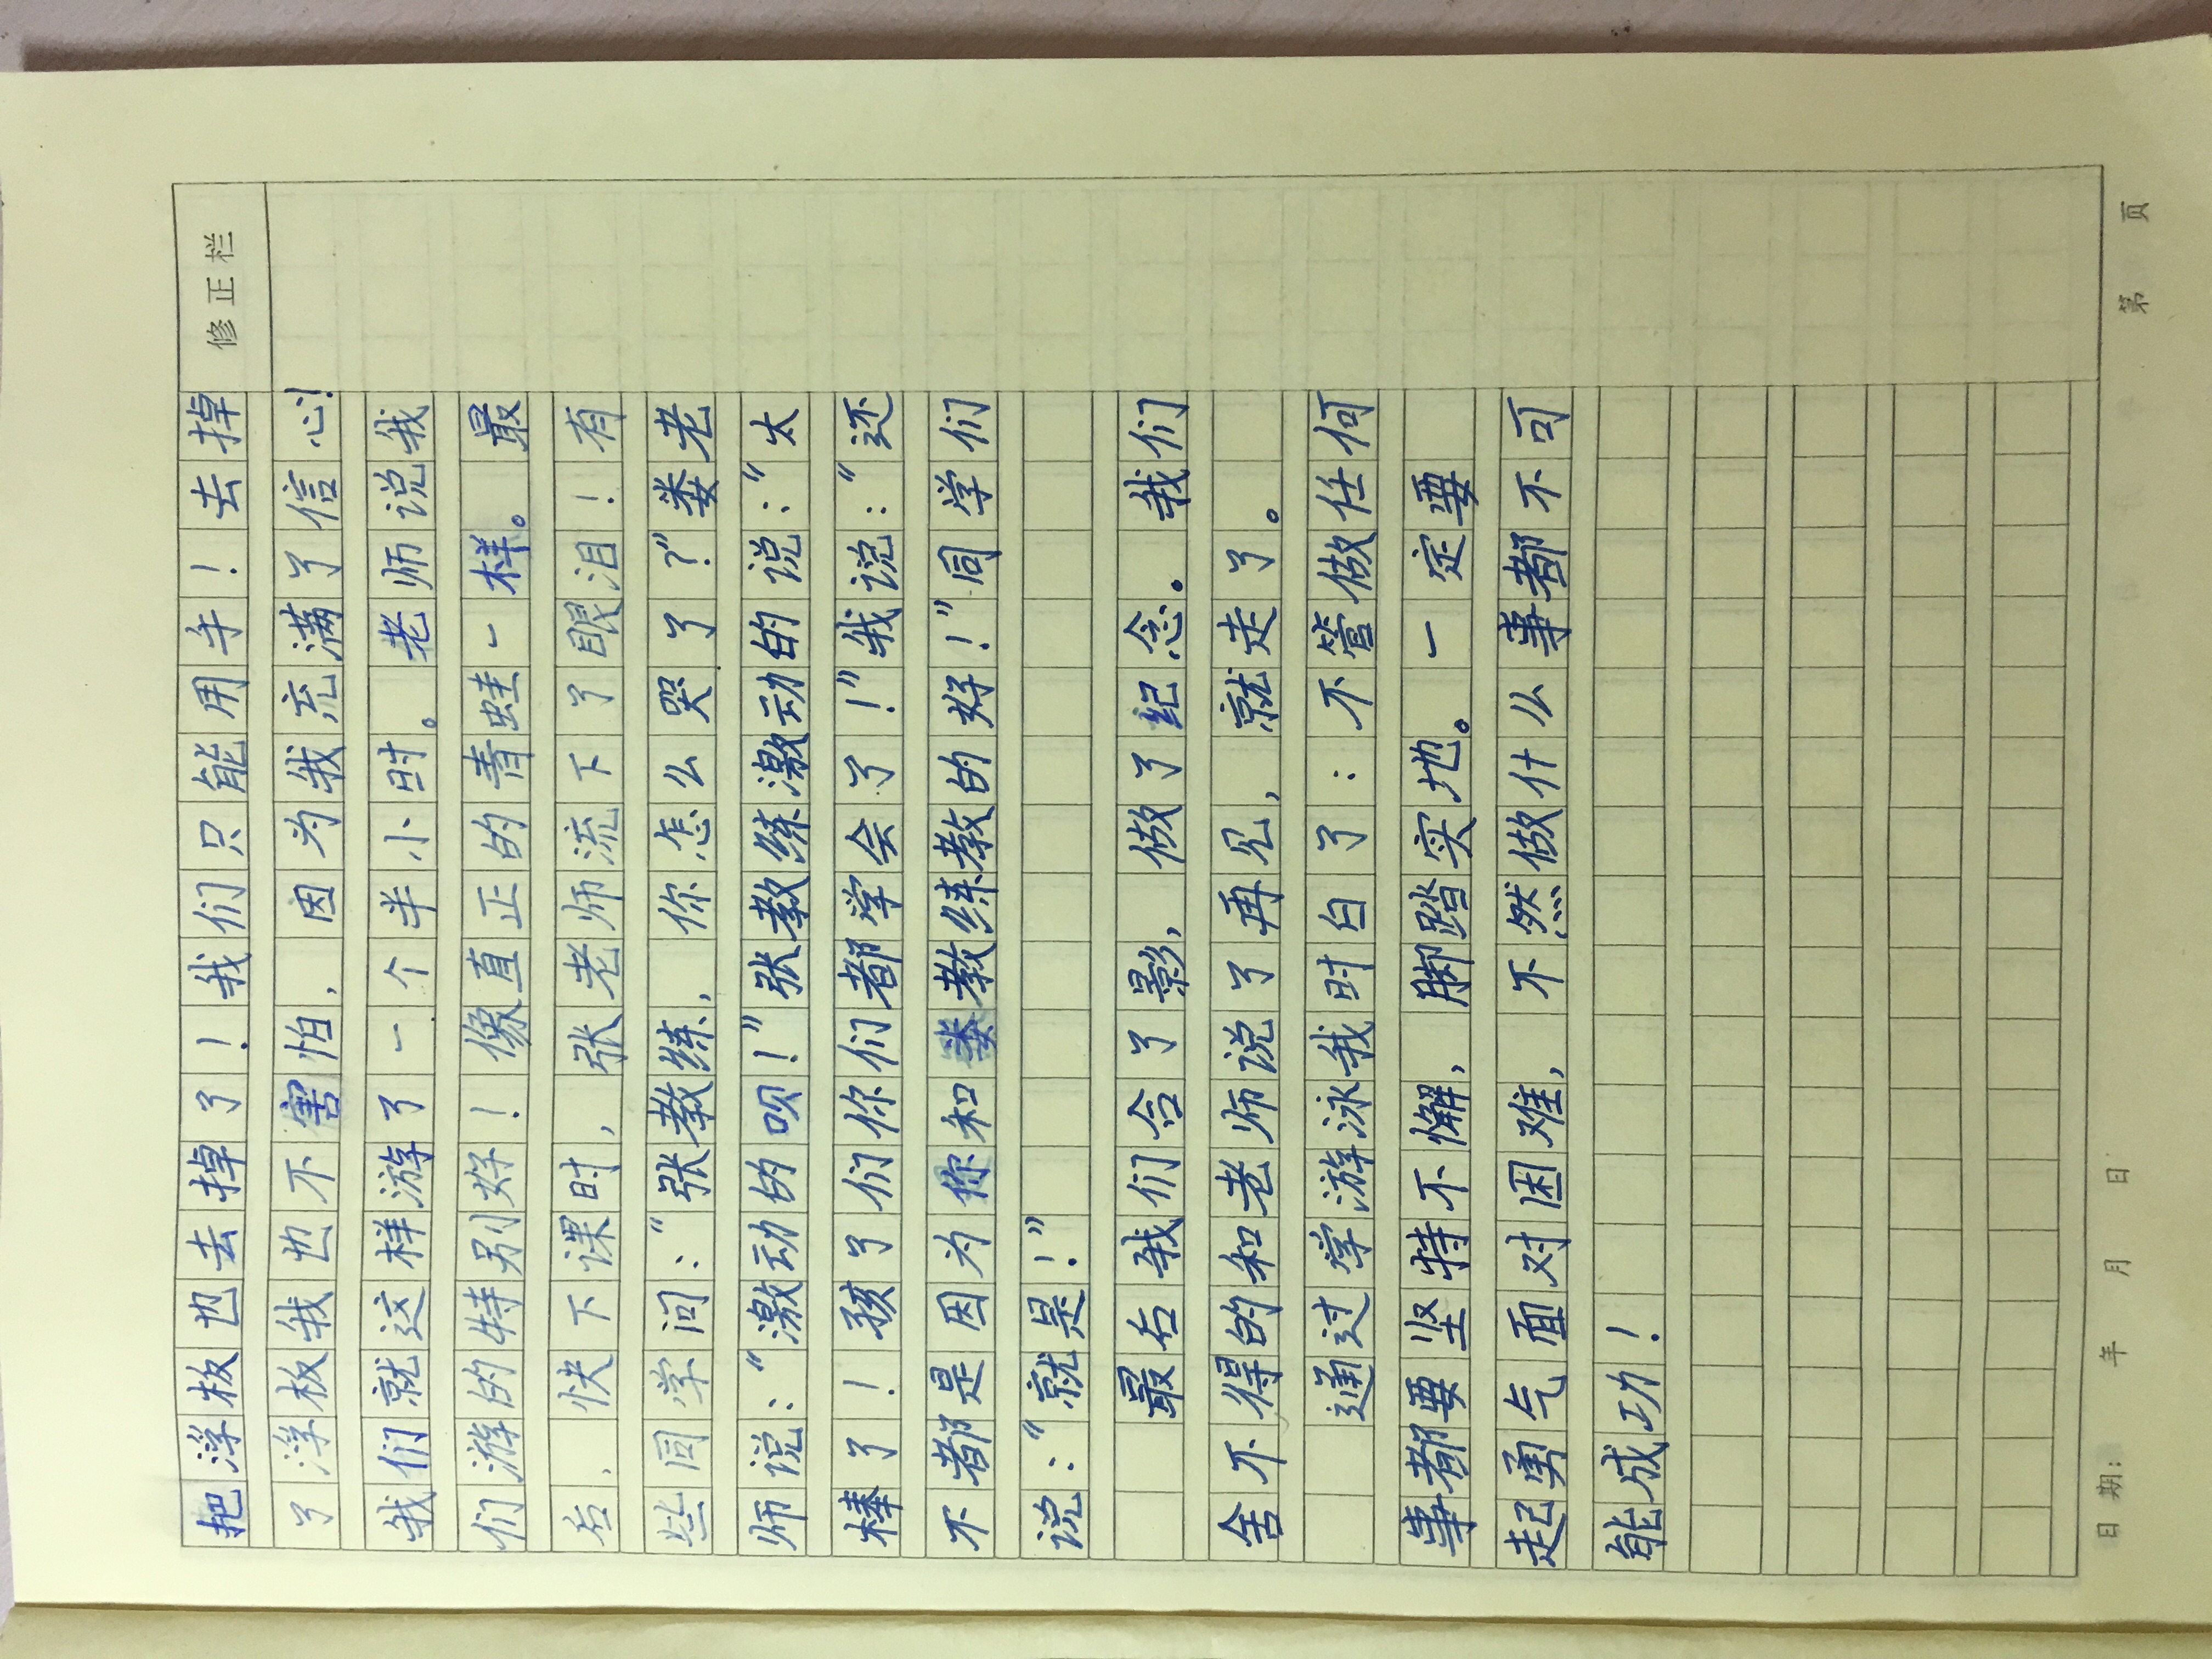 修正栏
把浮板也去掉了！我们只能用手！去掉
了浮板我也不害怕，因为我充满了信心！
我们就这样游了一个半小时。老师说我
们游的特别好！像直正的青蛙一样。最
后，快下课时，张老师流下了眼泪！有
些同学问：“张教练，你怎么哭了？”娄老
师说：“激动的呗！”张教练激动的说：“太
棒了！孩了们你们都学会了！”我说：“还
不都是因为你和娄教练教的好！”同学们
说：“就是！”
最后我们合了影，做了纪念。我们
舍不得的和老师说了再见，就走了。
通过学游泳我时白了：不管做任何
事都要坚特不懈，脚踏实地。一定要
起勇气面对困难，不然做什么事都不可
能成功！
日期： 年 月 日 第 页